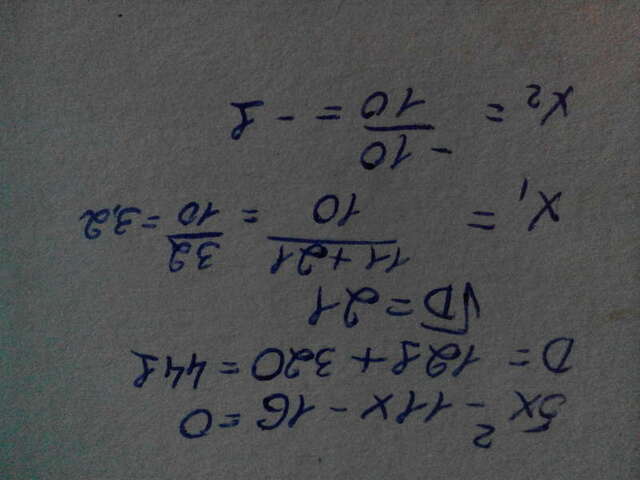 5x² - 11x - 16 = 0
D = 121 + 320 = 441
√D = 21
x₁ = (11 + 21)/10 = 32/10 = 3,2
x₂ = -10/10 = -1